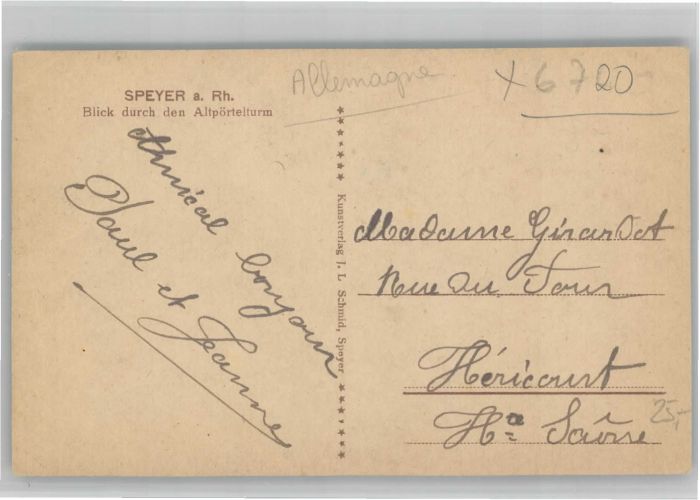 Allemagne
+ 6720
SPEYER a. Rh.
Blick durch den Altpörtelturm
Amical bonjour
Paul et Jeanne
Kunstverlag J. L. Schmid, Speyer
Madame Girardot
Rue du Four
Héricourt
Hte Saône
25,-